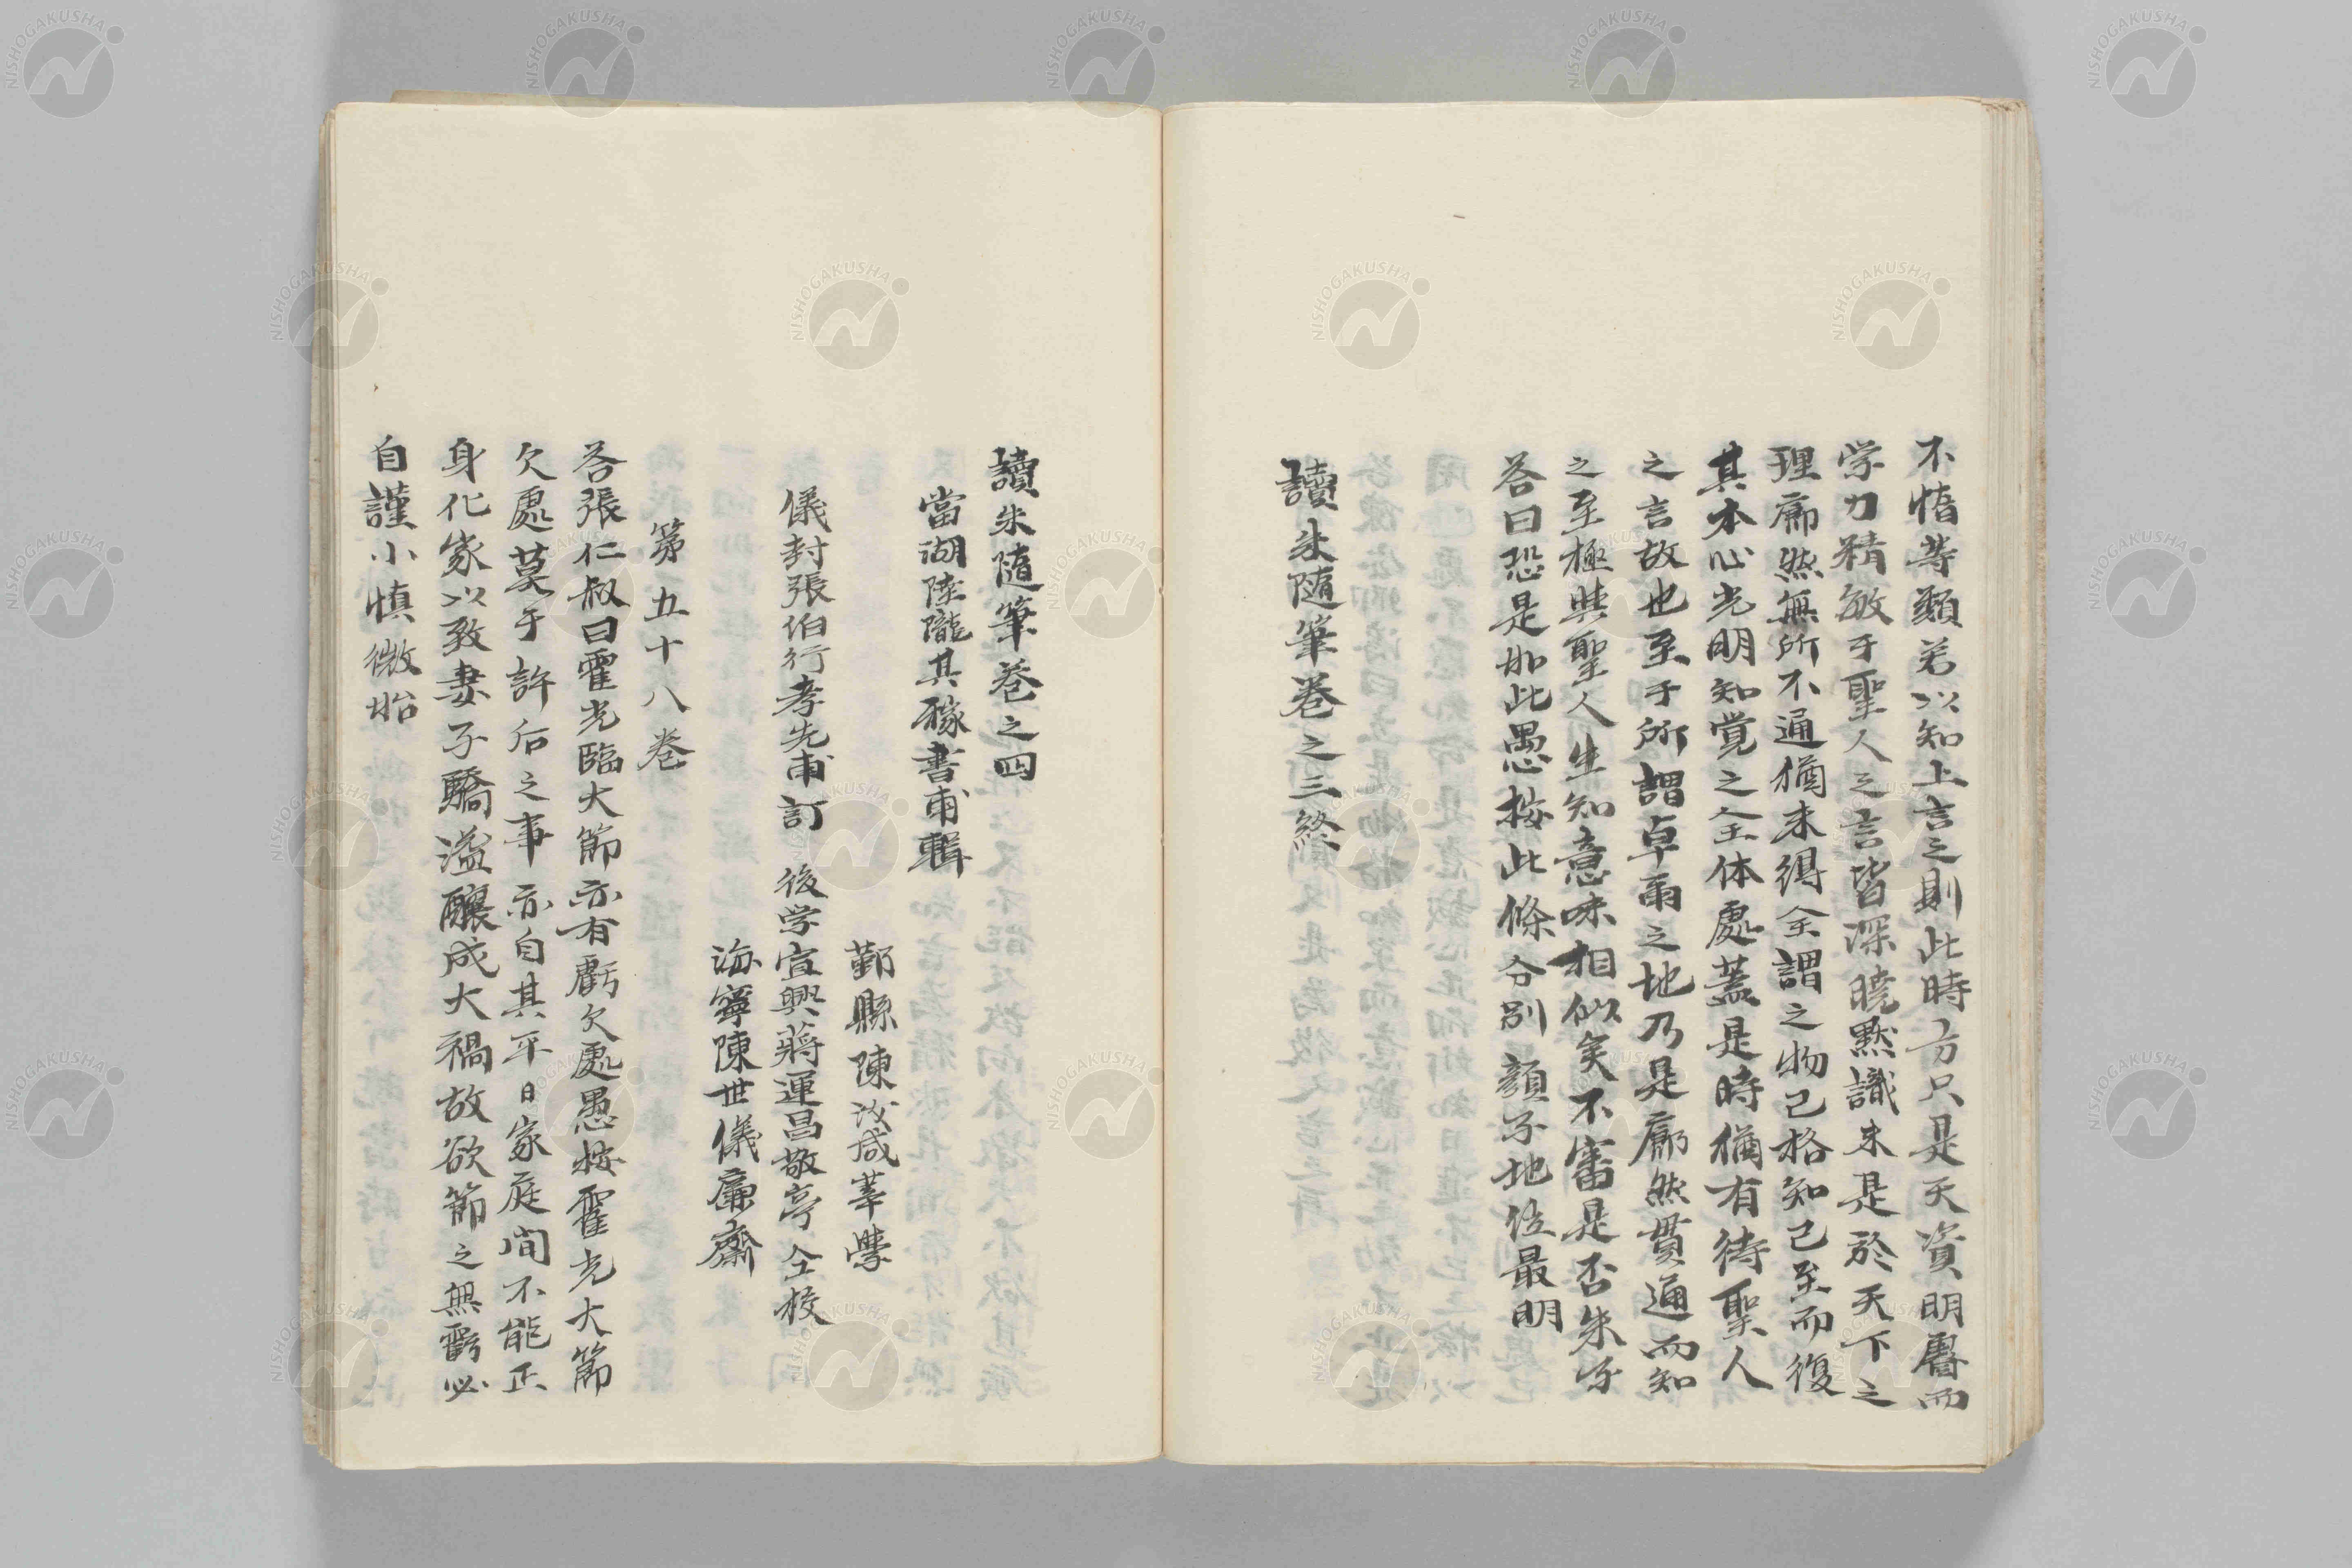 不惰等類若以知上言之則此時方只是天資明睿而
学力精敏于聖人之言皆深暁黙識未是於天下之
理廓然無所不通猶未得全謂之物已格知已至而復
其本心光明知覚之全体處蓋是時猶有待聖人
之言故也至于所謂卓爾之地乃是廓然貫通而知
之至極與聖人生知意味相似矣不審是否朱子
荅曰恐是如此愚按此條分別顔子地位最明
讀朱随筆巻之三終
讀朱随筆巻之四
當湖陸隴其稼書甫輯
鄞縣陳汝咸莘學
儀封張伯行孝先甫訂 後学宜興蔣運昌敬亭仝校
海寧陳世儀廉齋
第五十八巻
荅張仁叔曰霍光臨大節亦有虧欠處愚按霍光大節
欠處莫于許后之事亦自其平日家庭间不能正
身化家以致妻子驕溢釀成大禍故欲節之無虧必
自謹小慎微始
NISHOGAKUSHA